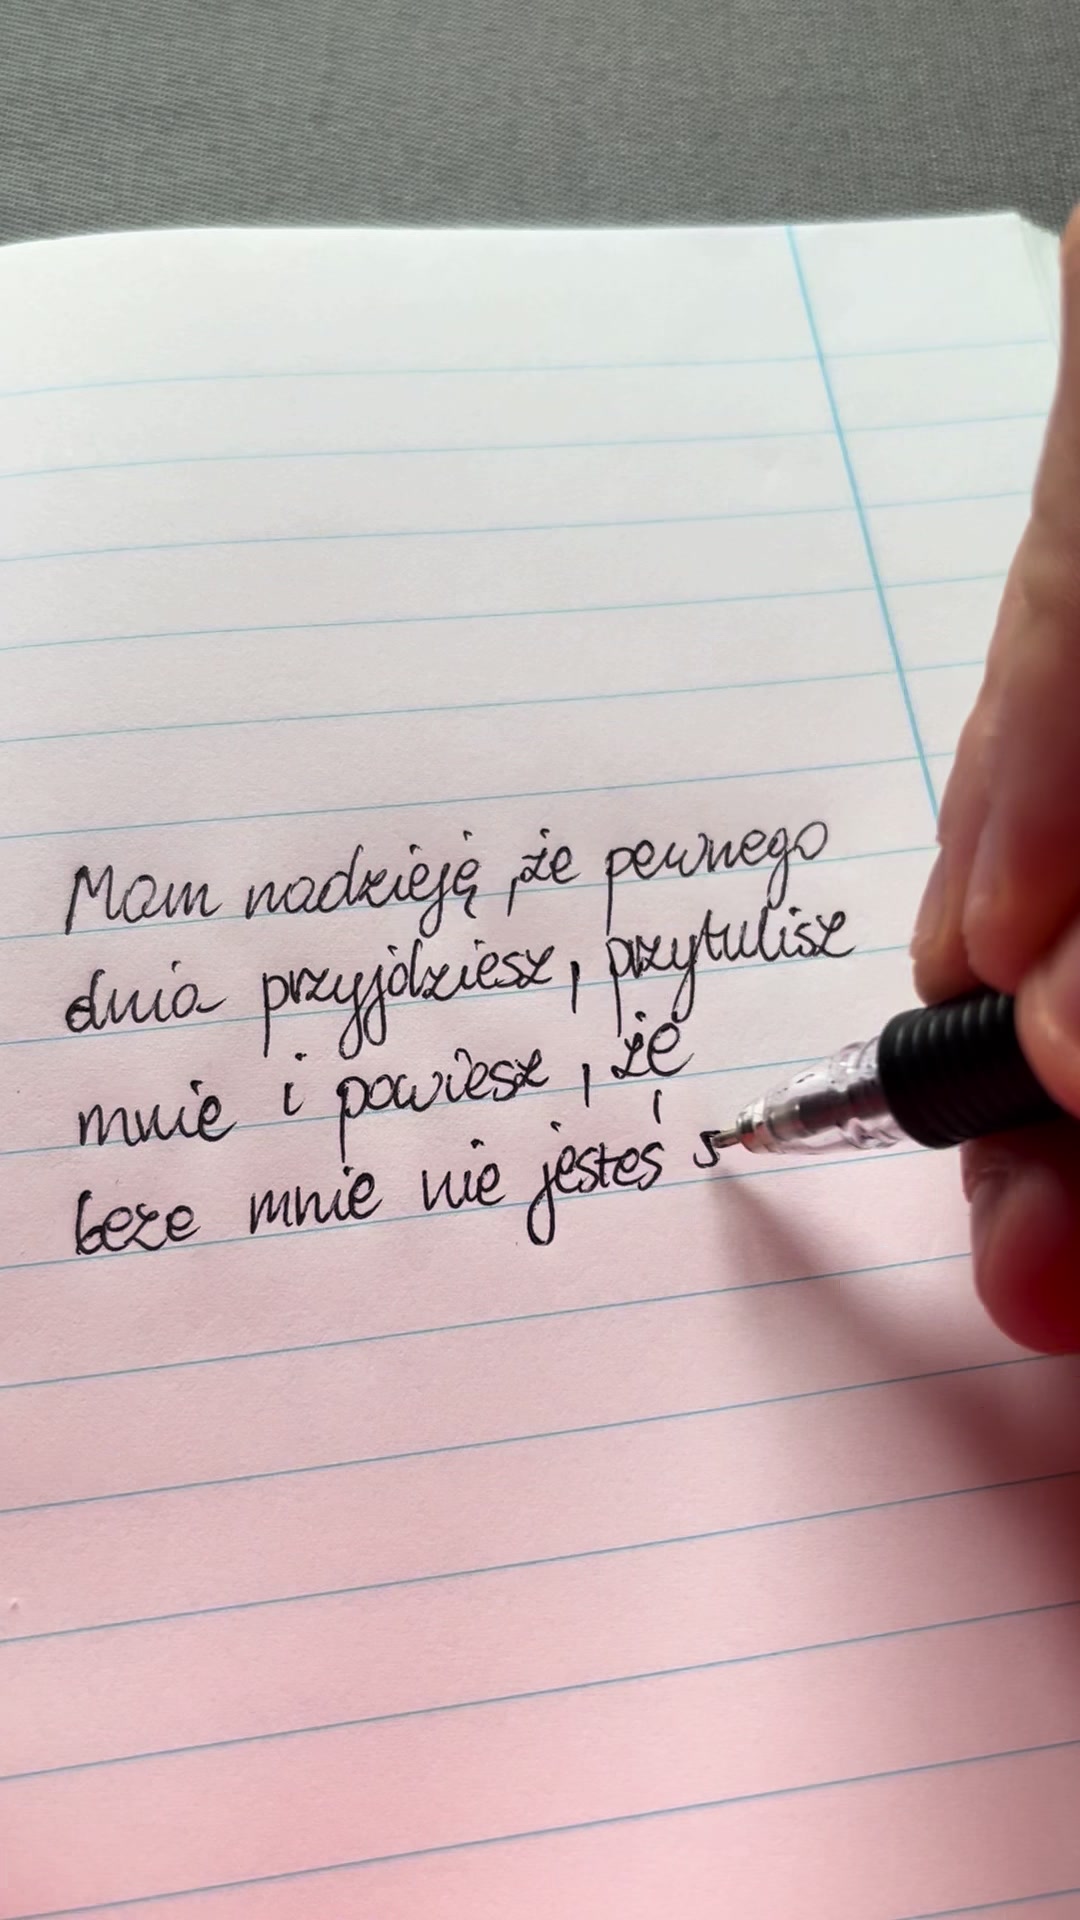 Mam nadzieję, że pewnego
dnia przyjdziesz, przytulisz
mnie i powiesz, że
beze mnie nie jesteś s